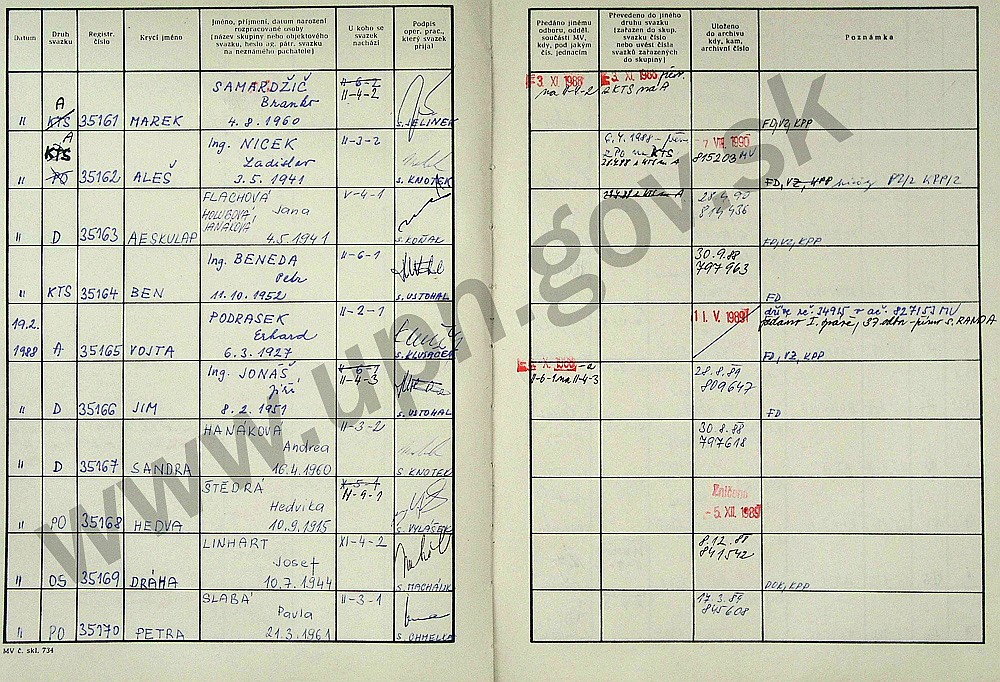 Datum
Druh
svazku
Registr.
číslo
Krycí jméno
Jméno, příjmení, datum narození
rozpracované osoby
(název skupiny nebo objektového
svazku, heslo ag. pátr. svazku
na neznámého pachatele)
U koho se
svazek
nachází
Podpis
oper. prac.,
který svazek
přijal
Předáno jinému
odboru, odděl.
součásti MV,
kdy, pod jakým
čís. jednacím
Převedeno do jiného
druhu svazku
(zařazen do skup.
svazku číslo
nebo uvést čísla
svazků zařazených
do skupiny)
Uloženo
do archivu
kdy, kam,
archivní číslo
Poznámka
SAMARDŽIČ II-6-2
A Branko II-4-2
II KTS 35161 MAREK 4. 8. 1960 S. JELINEK
3. XI. 1988 3. XI. 1988 přev.
na II-4-2 z KTS na A
FD, VZ, KPP
A Ing. NICEK II-3-2
KTS Ladislav
II PO 35162 ALEŠ 3. 5. 1941 S. KNOTEK
6. 4. 1988 - přev. - 7 VIII. 1990
z PO na KTS 815203 MV
FD, VZ, KPP PZ/2 KPP/2
FLACHOVÁ V-4-1
HOLUBOVÁ, Jana
JANÁKOVÁ
II D 35163 AESKULAP 4.5.1941 S. KOŇAK
28.4.90
814436
FD, VZ, KPP
Ing. BENEDA II-6-1
Petr
II KTS 35164 BEN 11. 10. 1952 S. USTOHAL
30. 9. 88
797963
FD
19.2. PODRASEK II-2-1
Erhard
1988 A 35165 VOJTA 6. 3. 1927 S. KLUSÁČEK
1 I. V. 1989
dříve rč. 34915 v ač. 827153 MV
S. RANDA
FD, VZ, KPP
Ing. JONÁŠ II-6-1
Jiří, II-4-3
II D 35166 JIM 8. 2. 1951 S. USTOHAL
X. 1988 - a
II-6-1 na II-4-3
28. 8. 89
809647
FD
HANÁKOVÁ II-3-2
Andrea
II D 35167 SANDRA 16.4.1960 S. KNOTEK
30. 8. 88
797618
ŠTĚDRÁ X-5-1
Hedvika II-9-1
II PO 35168 HEDVA 10.9.1915 S. VYLAŠEK
Zničeno
- 5. XII. 1989
LINHART XI-4-2
Josef
II OS 35169 DRÁHA 10. 7. 1944 S. MACHÁLÍK
8. 12. 88
841542
DOK, KPP
SLABÁ II-3-1
Pavla
II PO 35170 PETRA 21. 3. 1961 S. CHMELLA
17. 3. 89
845608
MV č. skl. 734
www.upn.gov.sk